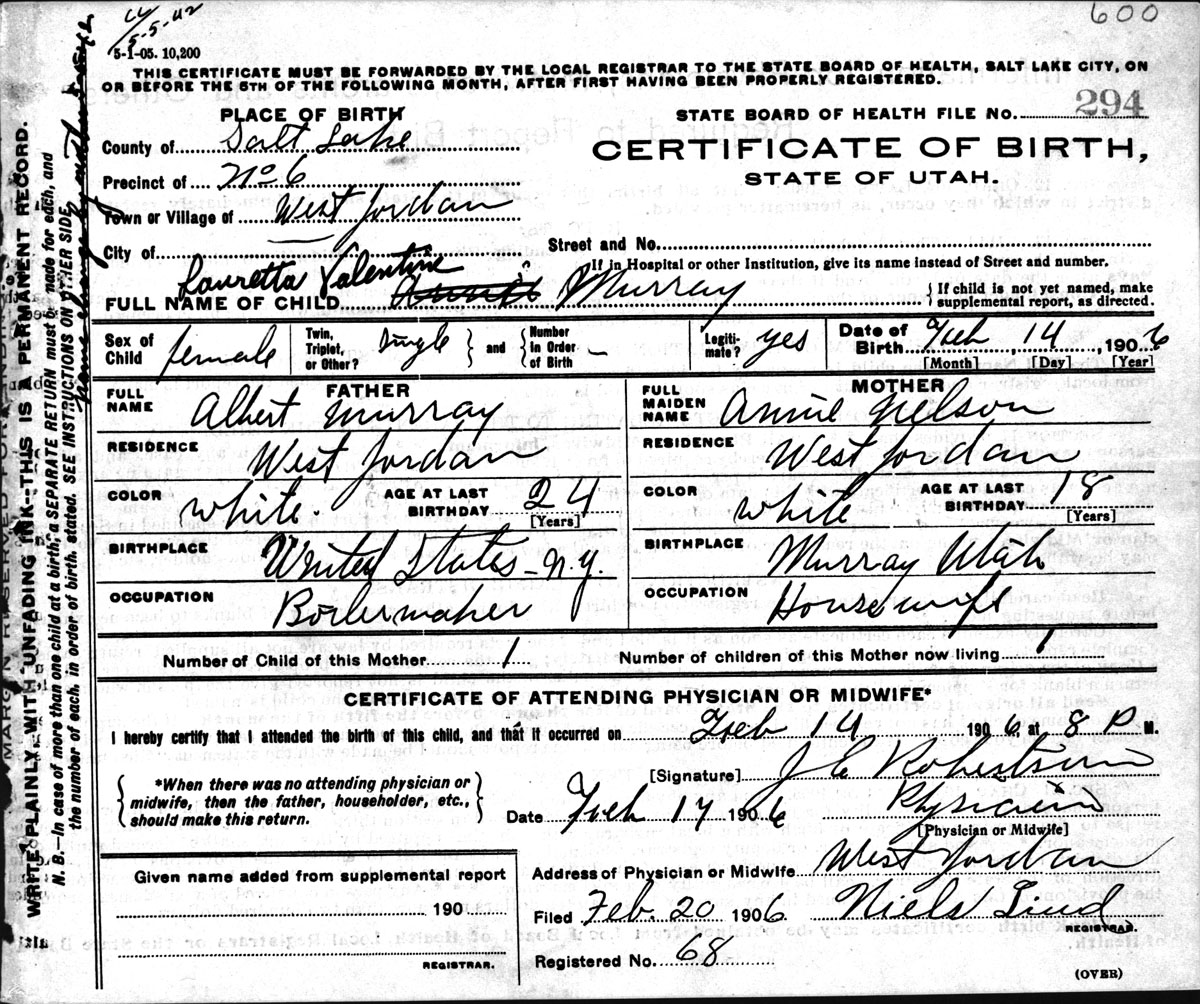 600
5-5-42
5-1-05. 10,200
THIS CERTIFICATE MUST BE FORWARDED BY THE LOCAL REGISTRAR TO THE STATE BOARD OF HEALTH, SALT LAKE CITY, ON
OR BEFORE THE 5TH OF THE FOLLOWING MONTH, AFTER FIRST HAVING BEEN PROPERLY REGISTERED.
PLACE OF BIRTH
STATE BOARD OF HEALTH FILE NO. 294
County of Salt Lake
CERTIFICATE OF BIRTH,
Precinct of No 6
STATE OF UTAH.
Town or Village of West Jordan
City of
Street and No.
If in Hospital or other Institution, give its name instead of Street and number.
Lauretta Valentine
FULL NAME OF CHILD Murray
{ If child is not yet named, make
supplemental report, as directed.
Sex of Child female
Twin, Triplet, or Other? Single } and { Number in Order of Birth –
Legiti-mate? yes
Date of Birth Feb 14, 1906
[Month] [Day] [Year]
FATHER
FULL NAME Albert Murray
RESIDENCE West Jordan
COLOR white. AGE AT LAST BIRTHDAY 24
[Years]
BIRTHPLACE United States – N.Y.
OCCUPATION Boilermaker
MOTHER
FULL MAIDEN NAME Annie Nelson
RESIDENCE West Jordan
COLOR white AGE AT LAST BIRTHDAY 18
[Years]
BIRTHPLACE Murray Utah
OCCUPATION Housewife
Number of Child of this Mother 1 Number of children of this Mother now living 1
CERTIFICATE OF ATTENDING PHYSICIAN OR MIDWIFE*
I hereby certify that I attended the birth of this child, and that it occurred on Feb 14 1906, at 8 P M.
{ *When there was no attending physician or
midwife, then the father, householder, etc.,
should make this return. }
[Signature] J E Robertson
Date Feb 17 1906 Physician
[Physician or Midwife]
Given name added from supplemental report
190
REGISTRAR.
Address of Physician or Midwife West Jordan
Filed Feb. 20 1906. Niels Lind
REGISTRAR.
Registered No. 68
(OVER)
WRITE PLAINLY, WITH UNFADING INK--THIS IS A PERMANENT RECORD.
N. B.—In case of more than one child at a birth, a SEPARATE RETURN must be made for each, and
the number of each, in order of birth, stated. SEE INSTRUCTIONS ON OTHER SIDE.